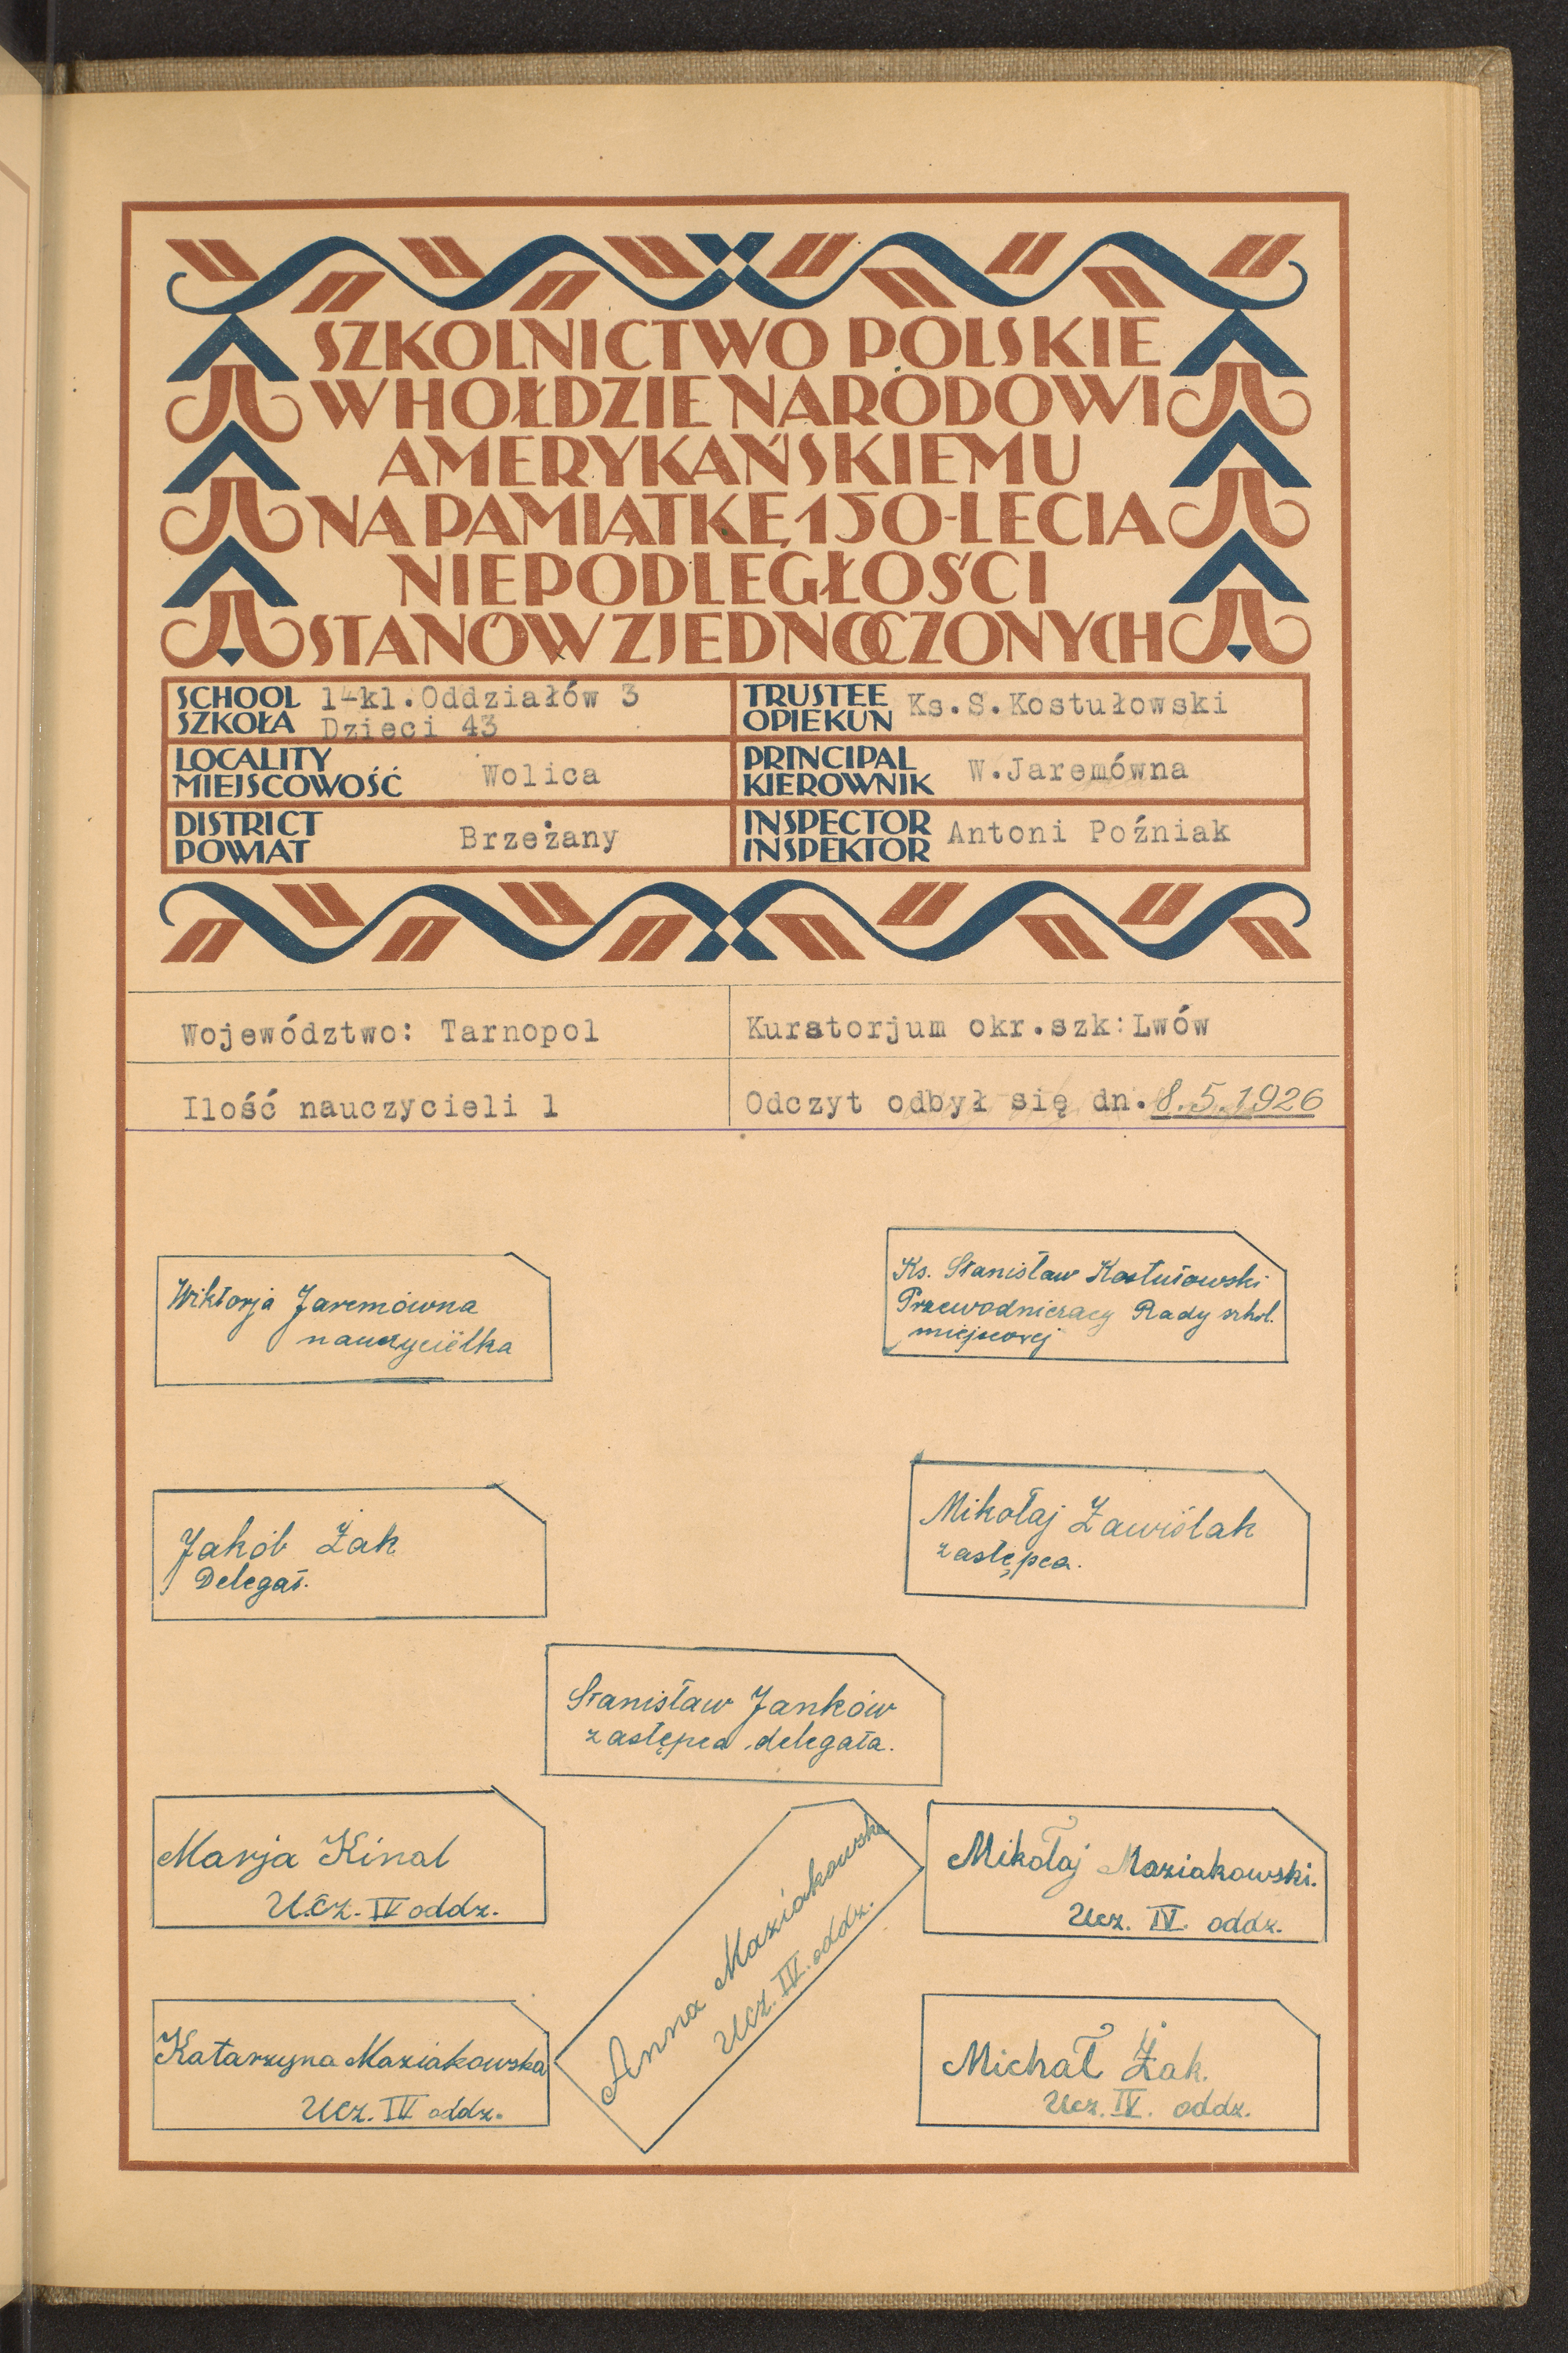 SZKOLNICTWO POLSKIE
W HOŁDZIE NARODOWI
AMERYKAŃSKIEMU
NA PAMIĄTKĘ 150-LECIA
NIEPODLEGŁOŚCI
STANÓW ZJEDNOCZONYCH
SCHOOL
SZKOŁA
1-kl. Oddziałów 3
Dzieci 43
TRUSTEE
OPIEKUN
Ks.S.Kostułowski
LOCALITY
MIEJSCOWOŚĆ
Wolica
PRINCIPAL
KIEROWNIK
W.Jaremówna
DISTRICT
POWIAT
Brzeżany
INSPECTOR
INSPEKTOR
Antoni Poźniak
Województwo: Tarnopol
Kuratorjum okr.szk:Lwów
Ilość nauczycieli 1
Odczyt odbył się dn. 8.5.1926
Wiktorja Jaremówna
nauczycielka
Ks. Stanisław Kostułowski
Przewodniczacy Rady szkol.
miejscowej
Jakób Żak
Delegat.
Mikołaj Zawiślak
zastępca.
Stanisław Janków
zastępca delegata.
Marja Kinal
Ucz. IV oddz.
Anna Maziakowska
Ucz. IV. oddz.
Mikołaj Maziakowski.
Ucz. IV. oddz.
Katarzyna Maziakowska
Ucz. IV oddz.
Michał Żak.
Ucz. IV. oddz.